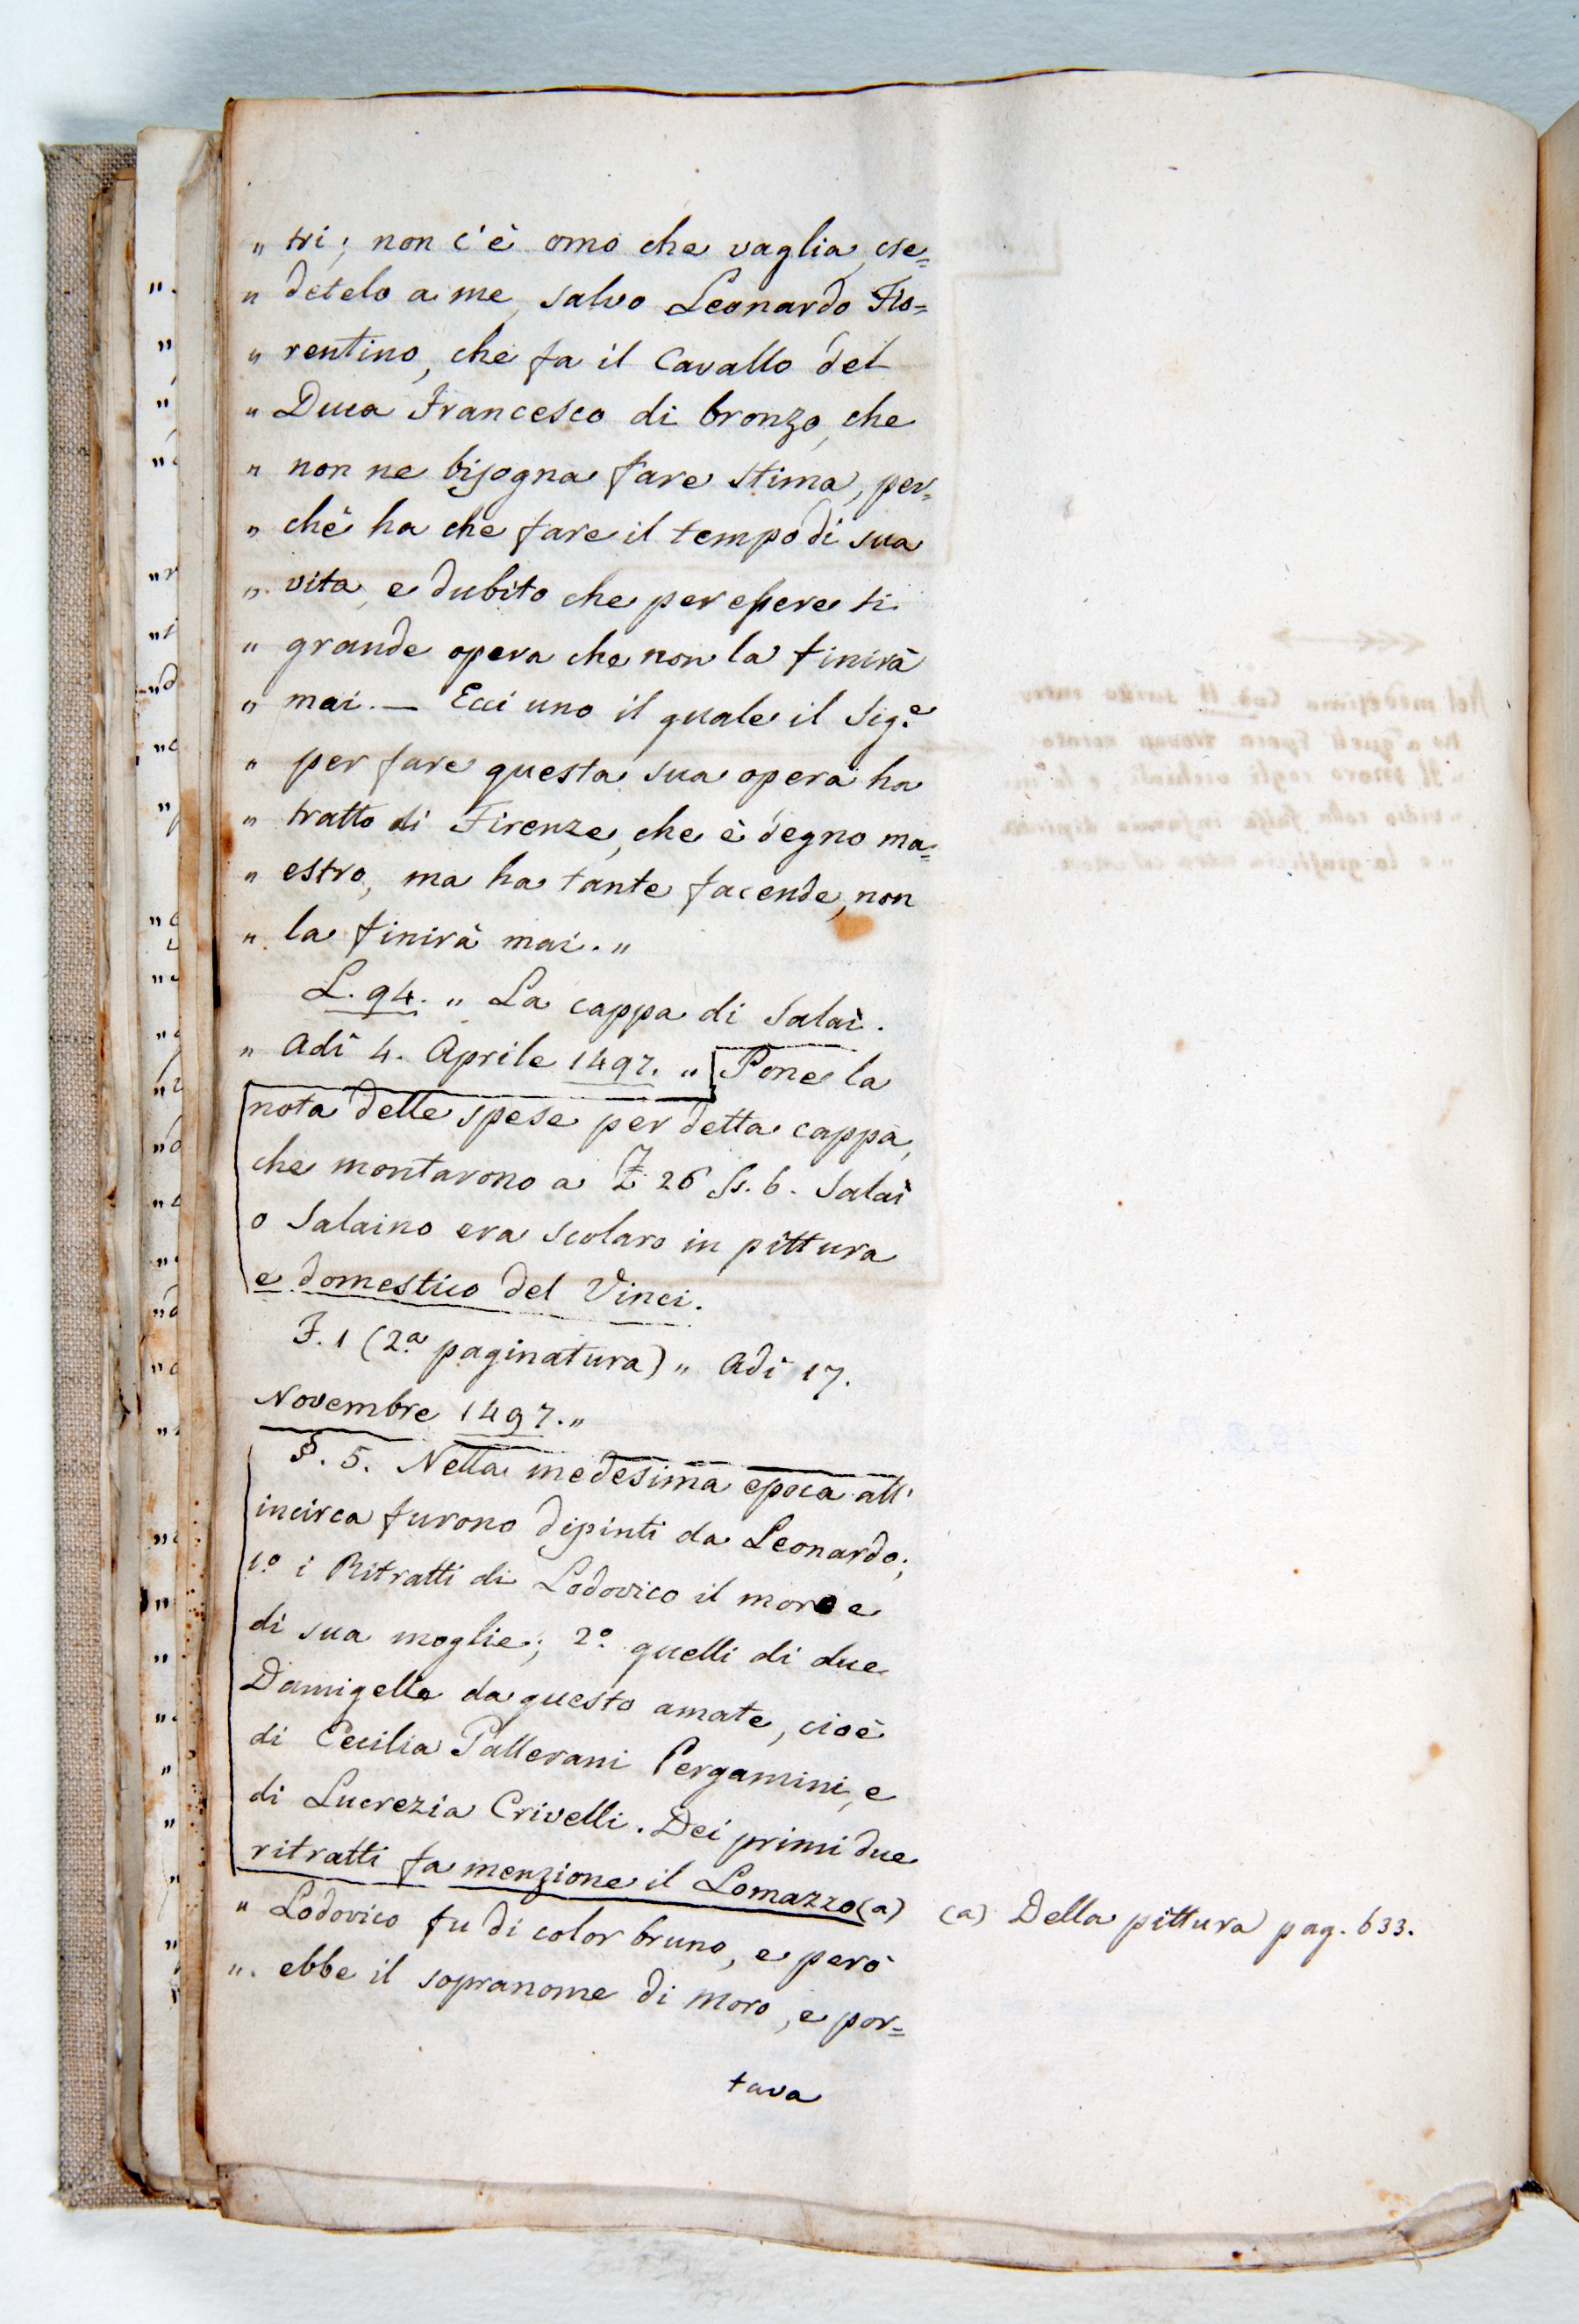 „ tri; non c'è omo che vaglia, cre=
„ detelo a me, salvo Leonardo Fio=
„ rentino, che fa il Cavallo del
„ Duca Francesco di bronzo, che
„ non ne bisogna fare stima, per=
„ chè ha che fare il tempo di sua
„ vita, e dubito che per essere sì
„ grande opera che non la finirà
„ mai. — Ecci uno il quale il Sig.e
„ per fare questa sua opera ha
„ tratto di Firenze, che è degno ma=
„ estro, ma ha tante facende, non
„ la finirà mai. „
L. 94. „ La cappa di Salaì.
„ Adì 4. Aprile 1497. „ Pone la
nota delle spese per detta cappa,
che montarono a 26 Ss. 6. Salaì
o Salaino era scolaro in pittura
e domestico del Vinci.
F. 1 (2.a paginatura) „ Adì 17.
Novembre 1497. „
§. 5. Nella medesima epoca all'
incirca furono dipinti da Leonardo;
1.o i Ritratti di Lodovico il moro e
di sua moglie; 2.o quelli di due
Damigelle da questo amate, cioè
di Cecilia Pallerani Pergamini, e
di Lucrezia Crivelli. Dei primi due
ritratti fa menzione il Lomazzo (a)
„ Lodovico fu di color bruno, e però
„ ebbe il sopranome di Moro, e por=
tava
(a) Della pittura pag. 633.